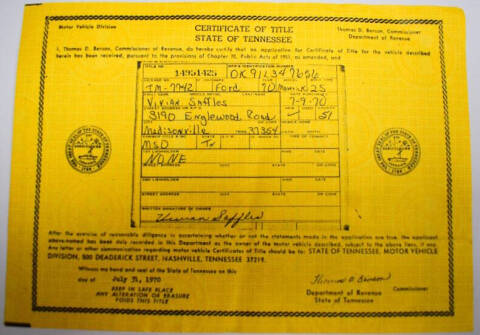 Motor Vehicle Division
CERTIFICATE OF TITLE
STATE OF TENNESSEE
Thomas D. Benson, Commissioner
Department of Revenue
I, Thomas D. Benson, Commissioner of Revenue, do hereby certify that an application for Certificate of Title for the vehicle described
herein has been received, pursuant to the provisions of Chapter 70, Public Acts of 1951, as amended, and
TITLE NO.
14951425
Ford 70 Maverick 2S
Vivian Saffles 7-9-70
3190 Englewood Road
Madisonville 37354
MSO Tn
NONE
STREET ADDRESS CITY STATE OR CODE
WRITTEN SIGNATURE OF OWNER
Vivian Saffles
After the exercise of reasonable diligence in ascertaining whether or not the statements made in the application are true, the applicant
above-named has been duly recorded in this Department as the owner of the motor vehicle described, subject to the above liens, if any
Any letter or other communication regarding motor vehicle Certificates of Title should be to: STATE OF TENNESSEE, MOTOR VEHICLE
DIVISION, 500 DEADERICK STREET, NASHVILLE, TENNESSEE 37219.
Witness my hand and seal of the State of Tennessee on this
day of July 31, 1970
KEEP IN SAFE PLACE
ANY ALTERATION OR ERASURE
VOIDS THIS TITLE
Thomas D. Benson
Commissioner
Department of Revenue
State of Tennessee